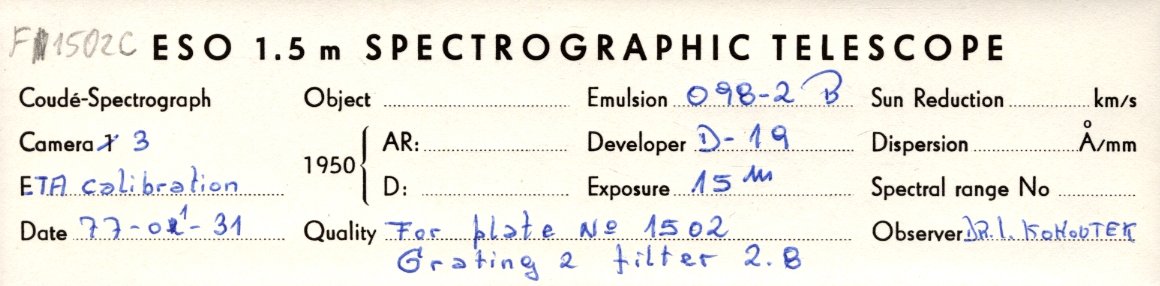 F 1502C ESO 1.5 m SPECTROGRAPHIC TELESCOPE
Coudé-Spectrograph Object Emulsion 098-2 B Sun Reduction km/s
Camera 3 1950 AR: Developer D-19 Dispersion Å/mm
ETA calibration D: Exposure 15 m Spectral range No
Date 77-01-31 Quality For plate Nº 1502 Observer DR. L. KOHOUTEK
Grating 2 filter 2.B